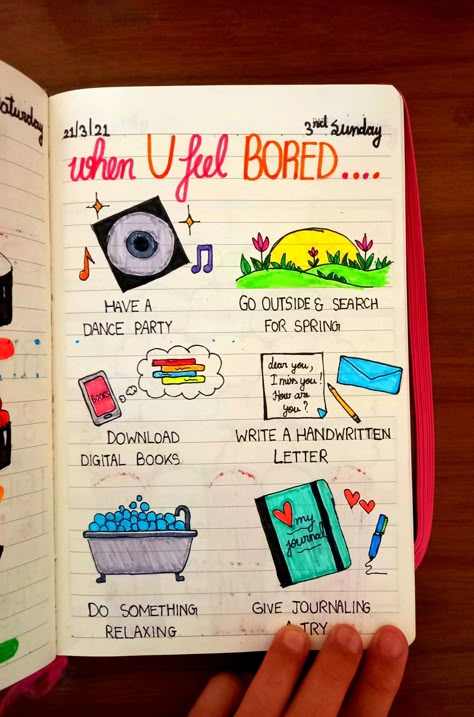 aturday
21/3/21
3rd Sunday
when U feel BORED....
HAVE A
DANCE PARTY
GO OUTSIDE & SEARCH
FOR SPRING
BOOKS
DOWNLOAD
DIGITAL BOOKS
dear you,
I miss you!
How are
you?
WRITE A HANDWRITTEN
LETTER
DO SOMETHING
RELAXING
my
journal
GIVE JOURNALING
A TRY